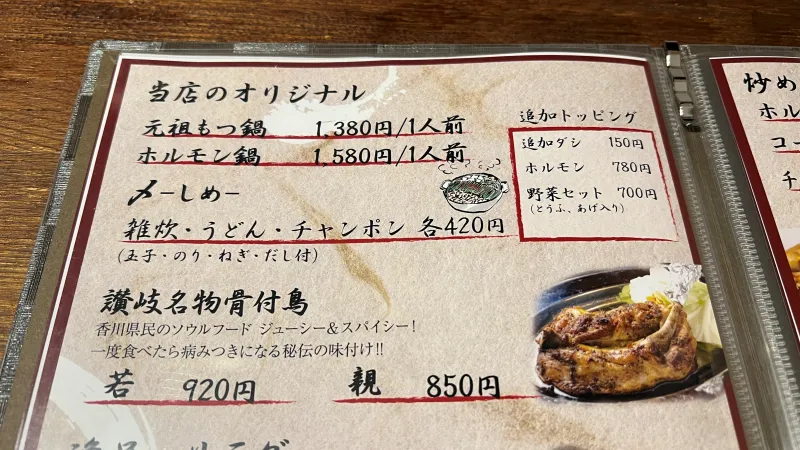 当店のオリジナル
元祖もつ鍋 1,380円/1人前
ホルモン鍋 1,580円/1人前
〆ーしめー
雑炊・うどん・チャンポン 各420円
(玉子・のり・ねぎ・だし付)
追加トッピング
追加ダシ 150円
ホルモン 780円
野菜セット 700円
(とうふ、あげ入り)
讃岐名物骨付鳥
香川県民のソウルフード ジューシー&スパイシー!
一度食べたら病みつきになる秘伝の味付け!!
若 920円 親 850円
炒め
ホル
コー
チ